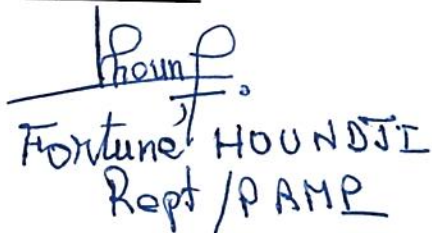 Houn f.
Fortuné HOUNDJI
Rept/PAMP